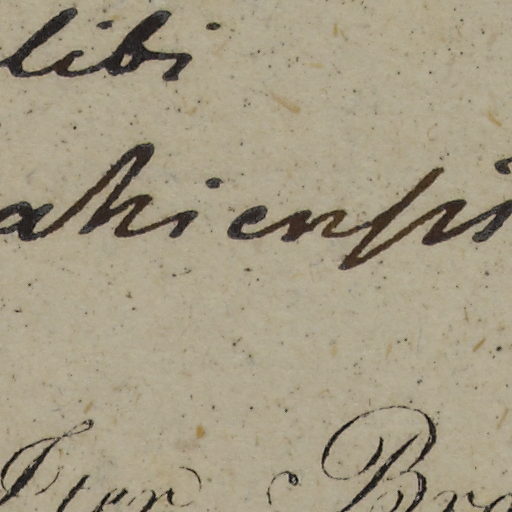 libi
ahiensis
Iter Bra